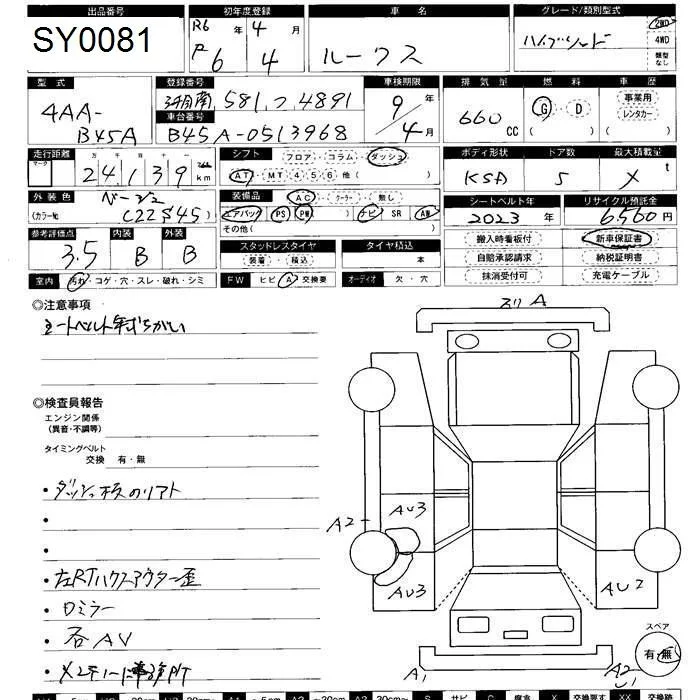 出品番号 初年度登録 車名 グレード/類別型式
SY0081 R6年 4月 ルークス ハイブリッド 2WD
P6 4 4WD
類型なし
型式 登録番号 車検期限 排気量 燃料 車歴
4AA- 581 つ 4891 9年 660 G・D 事業用
車台番号 レンタカー
B45A B45A-0513968 4月 CC ( ) ( )
走行距離 シフト フロア・コラム・ダッシュ ボディ形状 ドア数 最大積載量
マーク 24,139 km AT・MT 4 5 6 他( ) 5 X t
外装色 ベージュ 装備品 AC・クーラー・無し シートベルト年 リサイクル預託金
(カラーNo. C22$45) エアバック PS PW ナビ SR AW 2023年 6,560円
その他( )
参考評価点 内装 外装 スタッドレスタイヤ タイヤ積込 搬入時看板付 新車保証書
3.5 B B 装着・積込 本 自賠承認請求 納税証明書
室内 汚れ・コゲ・穴・スレ・破れ・シミ FW ヒビ・A・交換要 オーディオ 欠・穴 抹消受付可 充電ケーブル
◎注意事項
シートベルト年式ちがい
スリA
◎検査員報告
エンジン関係
(異音・不調等)
タイミングベルト
交換 有・無
・ダッシュ板のリアト
AU3
A2
・
・
・左RTハウスアウター歪
AU3 AU2
・ロミラー
スペア
・各AU
有・無
A1 A2